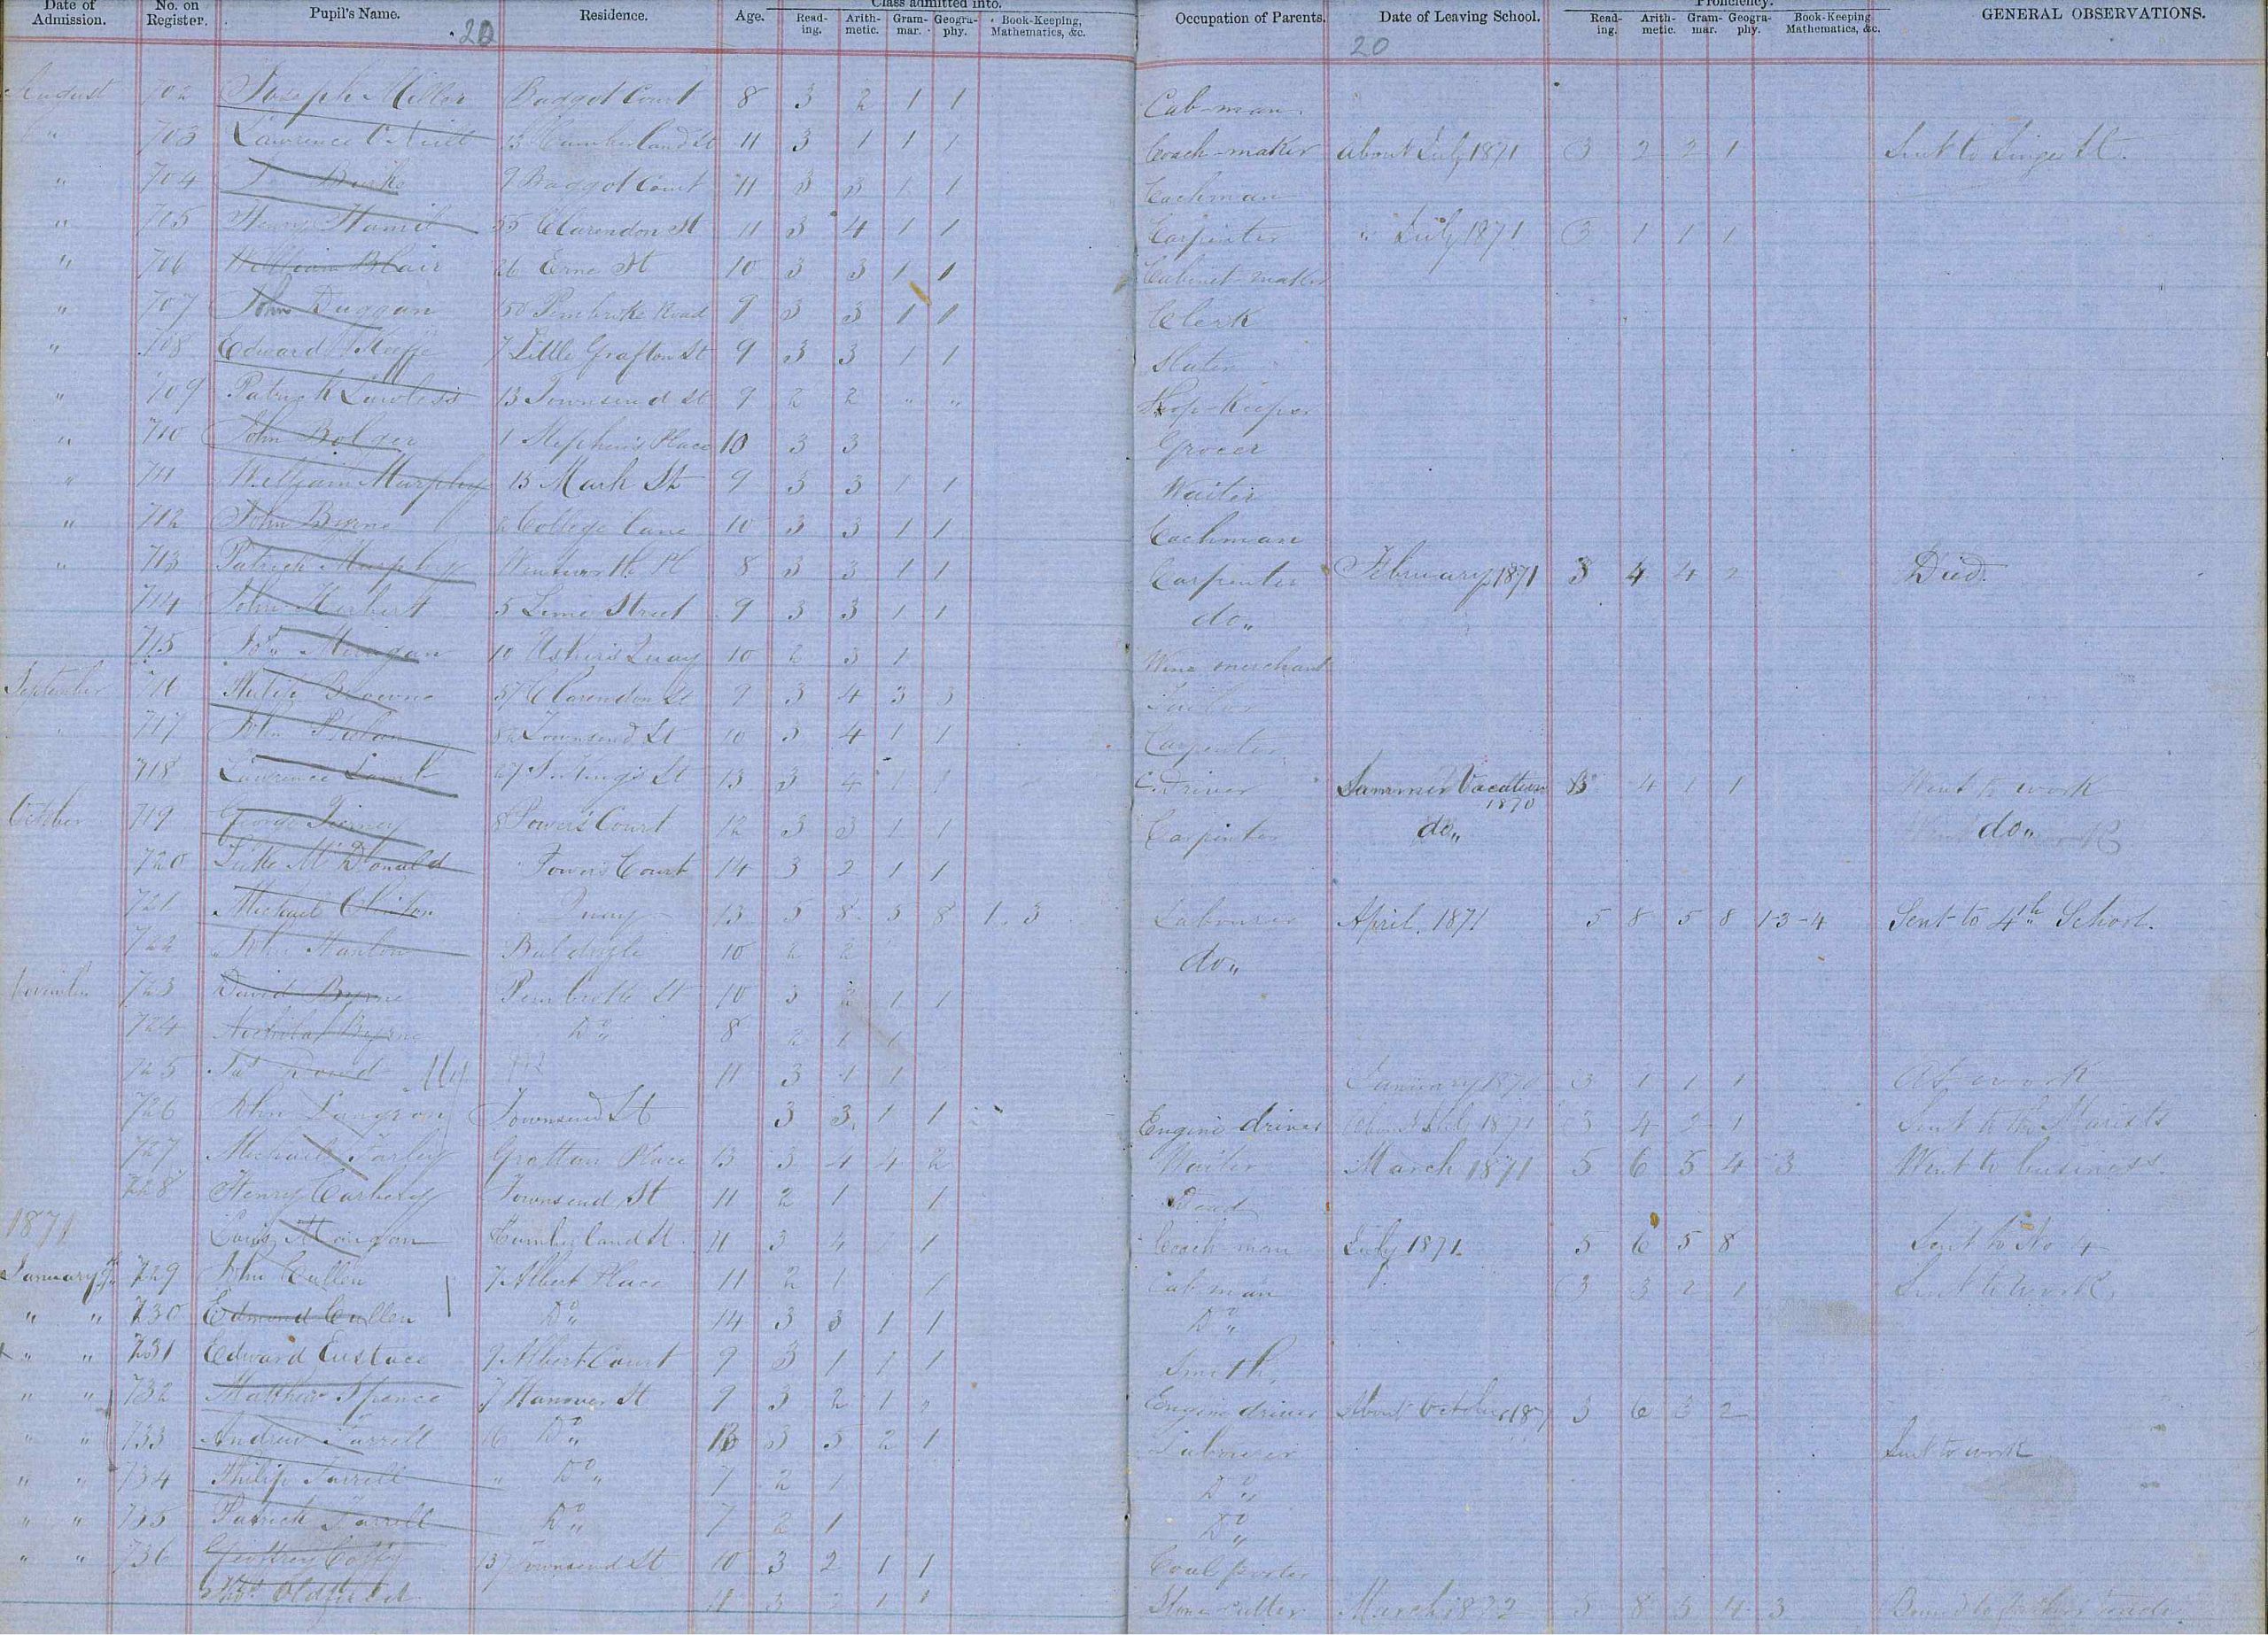 Date of Admission. No. on Register. Pupil's Name. Residence. Age. Class admitted into. Reading. Arithmetic. Grammar. Geography. Book-Keeping, Mathematics, &c. Occupation of Parents. Date of Leaving School. Proficiency. Reading. Arithmetic. Grammar. Geography. Book-Keeping Mathematics, &c. GENERAL OBSERVATIONS.
20 20
August 702 Joseph Miller Baggot Court 8 3 2 1 1 Cab-man
" 703 Lawrence O'Neill 13 Cumberland St 11 3 1 1 1 Coach-maker About July 1871 3 2 2 1 Sent to
" 704 Burke 9 Baggot Court 11 3 3 1 1 Coachman
" 705 Henry 55 Clarendon St 11 3 4 1 1 Carpenter " July 1871 3 1 1 1
" 706 William Blair 26 Erne St 10 3 3 1 1 Cabinet-maker
" 707 John Duggan 50 Pembroke Road 9 3 3 1 1 Clerk
" 708 Edward Keeffe 7 Little Grafton St 9 3 3 1 1 Slater
" 709 Patrick Lawless 13 Townsend St 9 2 2 " " Shop-Keeper
" 710 John Bolger 1 Stephen's Place 10 3 3 Grocer
" 711 William Murphy 13 Mark St 9 3 3 1 1 Waiter
" 712 John Byrne 2 College Lane 10 3 3 1 1 Coachman
" 713 Patrick Murphy Wentworth Pl 8 3 3 1 1 Carpenter February 1871 3 4 4 2 Died.
714 John Herbert 5 Lime Street 9 3 3 1 1 do"
715 Jos. 10 Usher's Quay 10 2 3 1 Wine merchant
September 716 Philip Browne 57 Clarendon St 9 3 4 3 3
717 John Phelan 82 Townsend St 10 3 4 1 1 Carpenter
718 Lawrence Lamb 27 King's St 13 3 4 1 1 Driver Summer Vacation 1870 3 4 1 1 Went to work
October 719 George Tierney 8 Power's Court 12 3 3 1 1 Carpenter do" do"
720 Luke McDonald Court 14 3 2 1 1
721 Michael Quay 13 5 8 5 8 1. 3 Labourer April. 1871 5 8 5 8 1-3-4 Sent to 4th School.
722 John Hanlon Baldoyle 10 2 2 do"
November 723 David Byrne Pembroke St 10 3 2 1 1
724 Nicholas Byrne Do" 8 2 1 1
725 Dowd 11 3 1 1 January 1870 3 1 1 1 At work
726 John Townsend St 3 3 1 1 Engine driver About July 1871 3 4 2 1 Sent to the Marists
727 Michael Farley Grattan Place 13 3 4 4 2 Waiter March 1871 5 6 5 4 3 Went to business.
728 Henry Carbery Townsend St 11 2 1 1 Dead
1871 Louis Cumberland St. 11 3 4 1 1 Coach-man July 1871. 5 6 5 8 Sent to No 4
January 9th 729 John Cullen 7 Albert Place 11 2 1 1 Cab man 3 3 2 1 Sent to work.
" " 730 Edmond Cullen Do" 14 3 3 1 1 Do"
" " 731 Edward Eustace 9 Albert Court 9 3 1 1 1 Smith
" " 732 Matthew Spence 7 Hanover St 9 3 2 1 " Engine driver About October 187 3 6 3 2
" " 733 Andrew Farrell 16 Do" 13 3 3 2 1 Labourer Sent to work
" " 734 Philip Farrell " Do" 7 2 1 Do"
" " 735 Patrick Farrell Do" 7 2 1 Do"
" " 736 Geoffrey Coffey 137 Townsend St 10 3 2 1 1 Coal porter
Thos. Oldfield 11 3 2 1 1 Stone-cutter March 1872 5 8 5 4 3 Bound to father's trade.